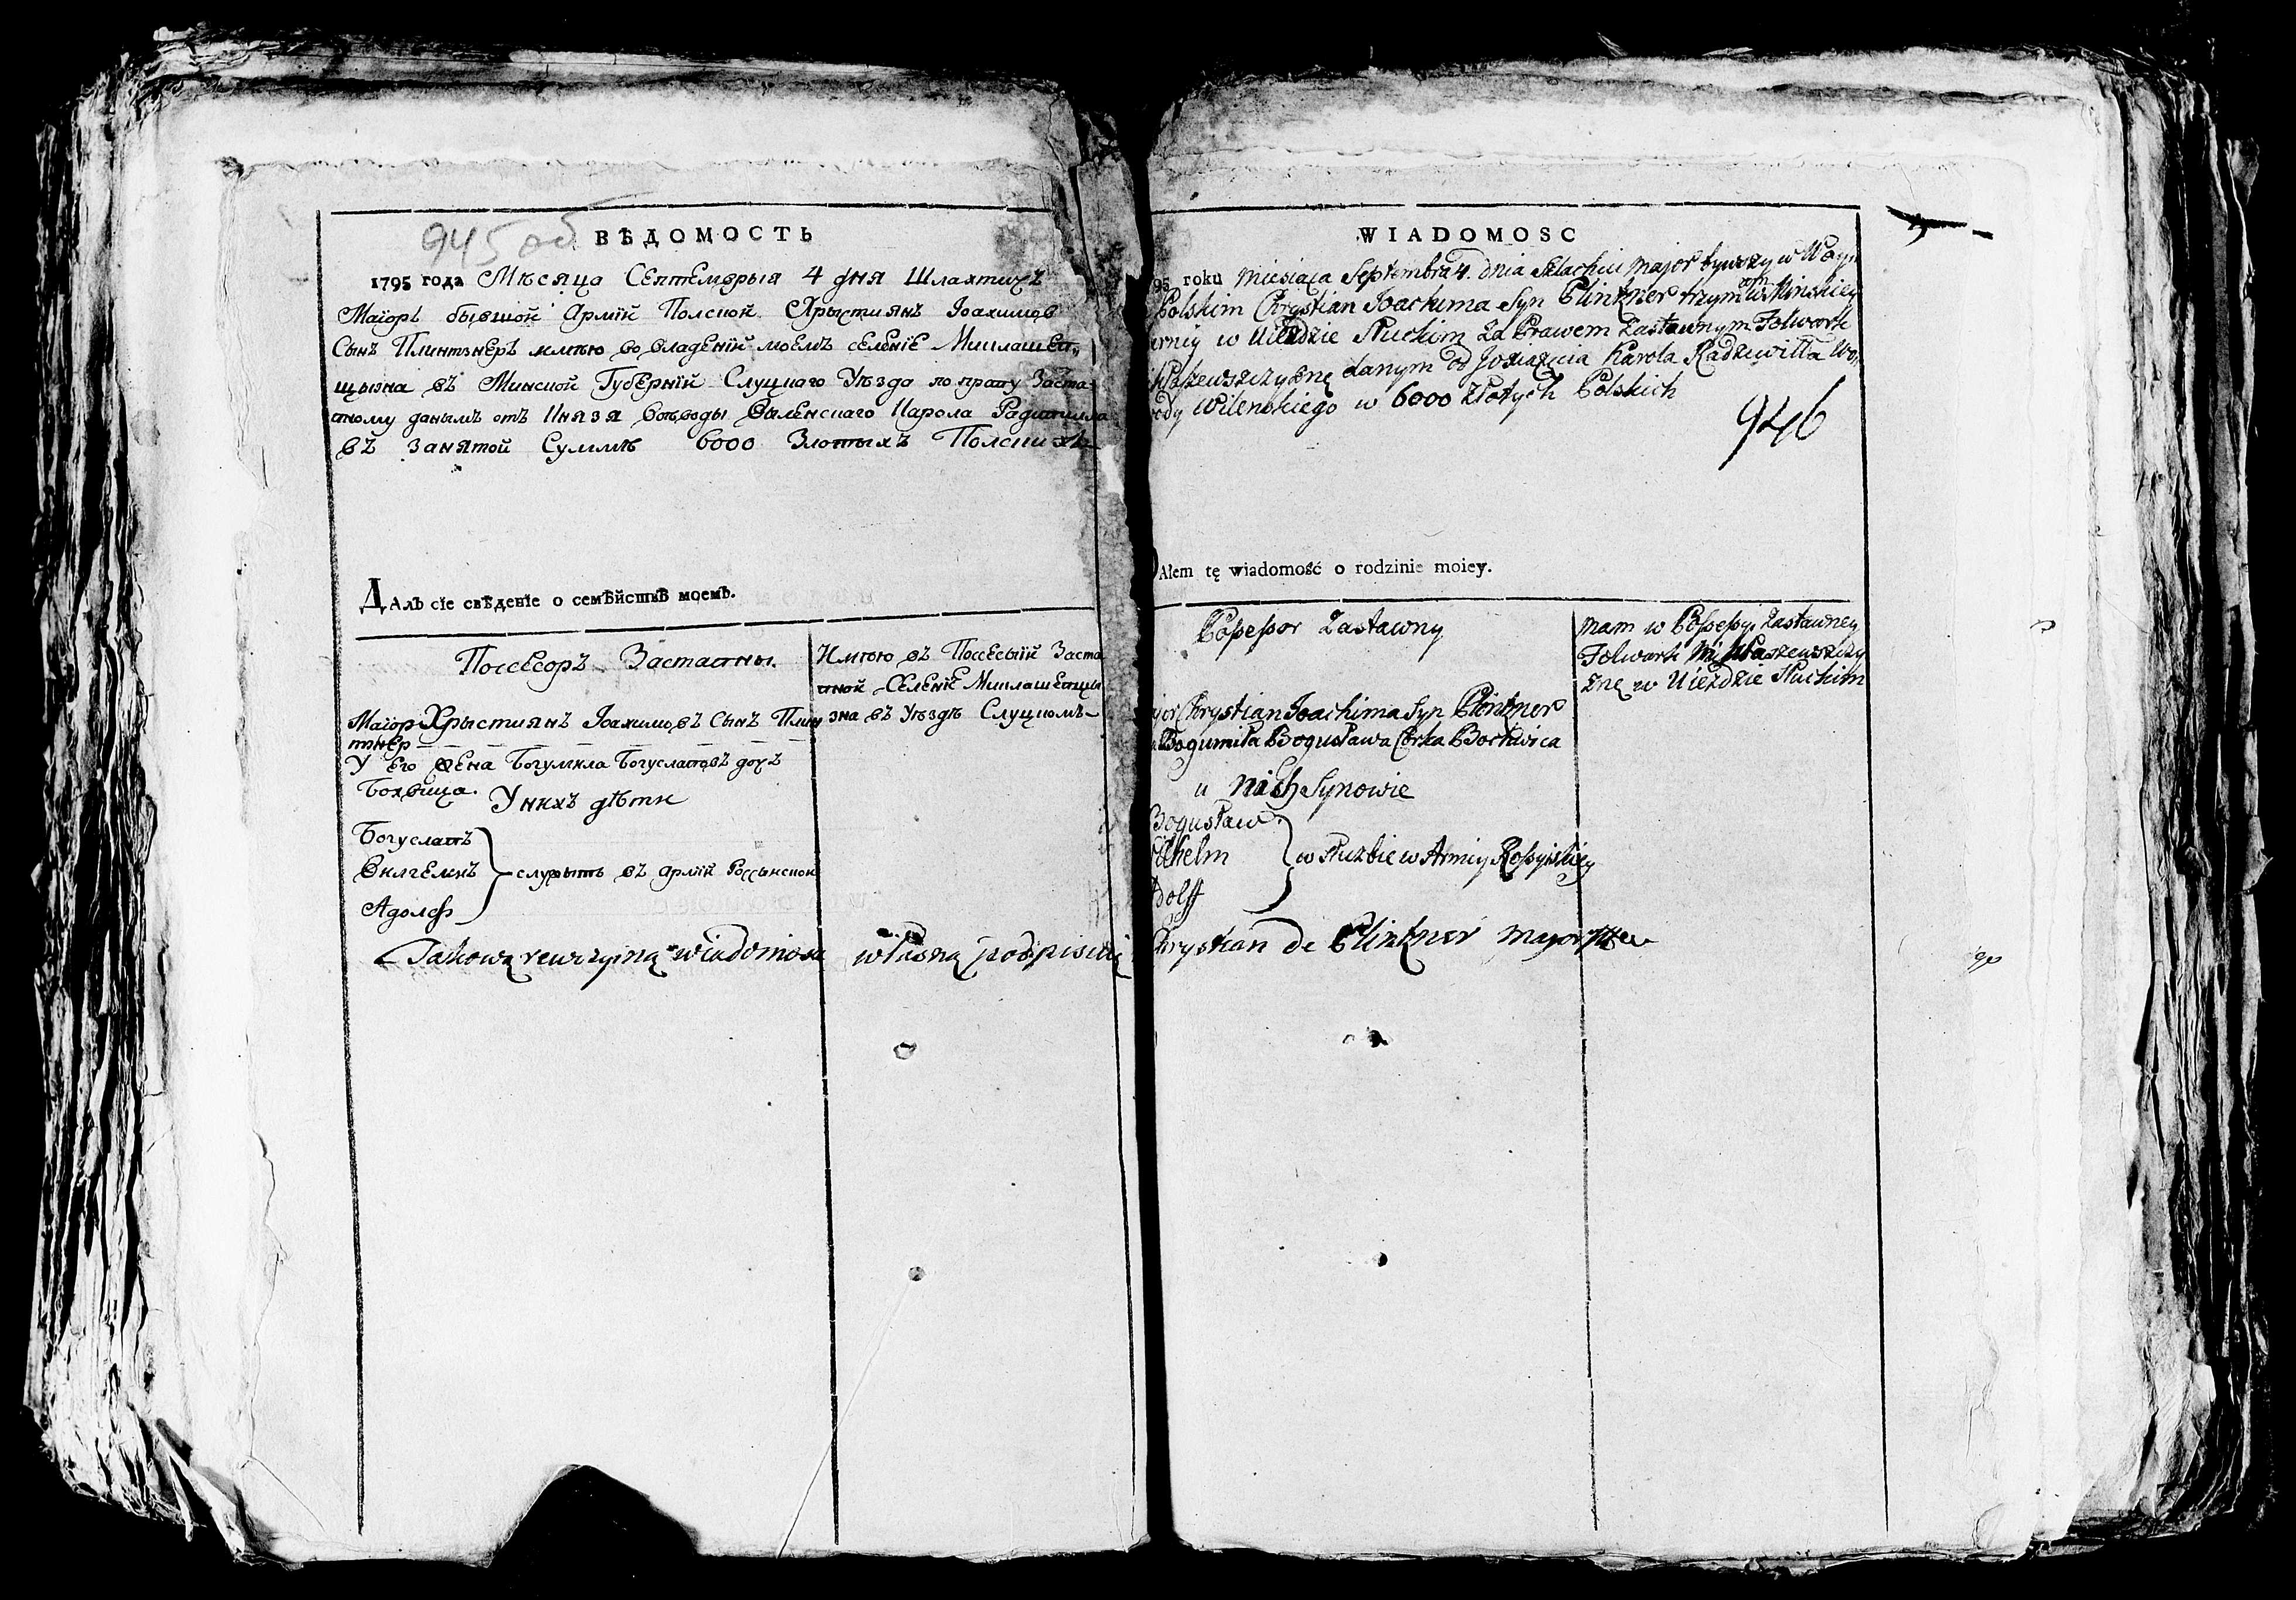 945 об
ВѢДОМОСТЬ
1795 года Мѣсяца Септемврыя 4 дня Шляхтичъ
Маіоръ бывшой Арміи Полской Хрыстиянъ Іоахимов
Сынъ Плинтзнеръ имѣю во владеніи моемъ селеніе Миклашев,,
щызна въ Минской Губерніи Слуцкаго Уѣзда по праву Застав
ному данымъ отъ Князя Воеводы Виленскаго Карола Радзивилла
въ занятой Суммѣ 6000 Злотыхъ Полскихъ
ДАлъ сіе свѣденіе о семѣйствѣ моемъ.
Поссесоръ Заставны.
Имѣю въ Поссесыіи Заста
вной Селеніе Миклашевщы
зна въ Уѣздѣ Слуцкомъ
Маіор Хрыстиянъ Іоахимовъ Сынъ Плин
тнер
У его жена Богумила Богуславовъ дочъ
Бохвица.
У нихъ дѣти
Богуславъ
Вилгелмъ
служытъ въ Арміи Россыиской
Адолф
WIADOMOSC
95 roku Miesiąca Septembra 4. dnia Szlachcic Major bywszy w Woys
Polskim Chrystian Joachima Syn Plintzner trzymam w Minskiey
ernij w Uieździe Słuckim Za Prawem Zastawnym Folwark
kłaszewszczyznę danym od Joxiążęcia Karola Radziwiłła Wo
ody Wilenskiego w 6000 Złotych Polskich
946
DAłem tę wiadomość o rodzinie moiey.
Possessor Zastawny
Mam w Possessyi Zastawney
Folwark Mikłaszewszczy
znę w Uieździe Słuckim
jor Chrystian Joachima Syn Plintzner
Bogumiła Bogusława Corka Bochwica
u nich Synowie
Bogusław
ilhelm
w służbie w Armij Rossyiskiey
dolff
Takową rewizyiną wiadomosc własną podpisuię Chrystian de Plintzner Major